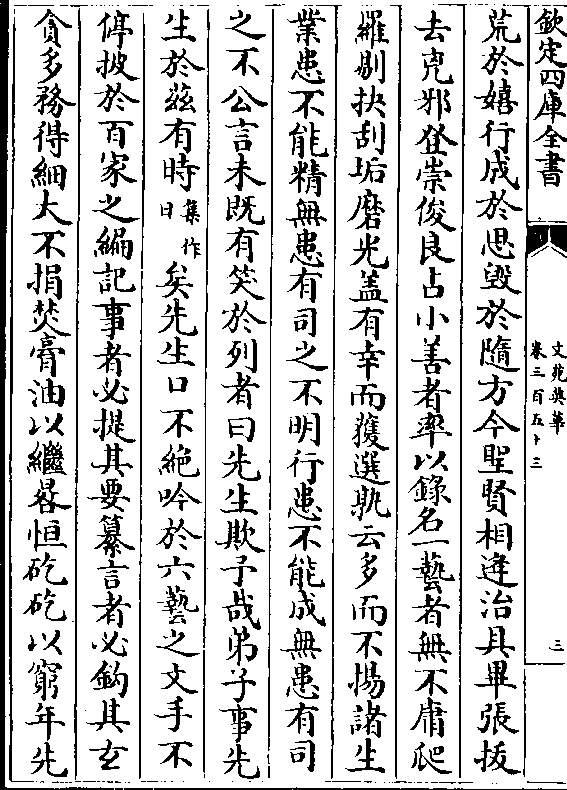 欽定四庫全書
文苑英華
卷三百五十三
三
荒於嬉行成於思毀於隨方今聖賢相逢治具畢張拔
去兇邪登崇俊良占小善者率以錄名一藝者無不庸爬
羅剔抉刮垢磨光蓋有幸而獲選孰云多而不揚諸生
業患不能精無患有司之不明行患不能成無患有司
之不公言未既有笑於列者曰先生欺予哉弟子事先
生於茲有時集作日矣先生口不絶吟於六藝之文手不
停披於百家之編記事者必提其要纂言者必鉤其玄
貪多務得細大不捐焚膏油以繼晷恒矻矻以窮年先